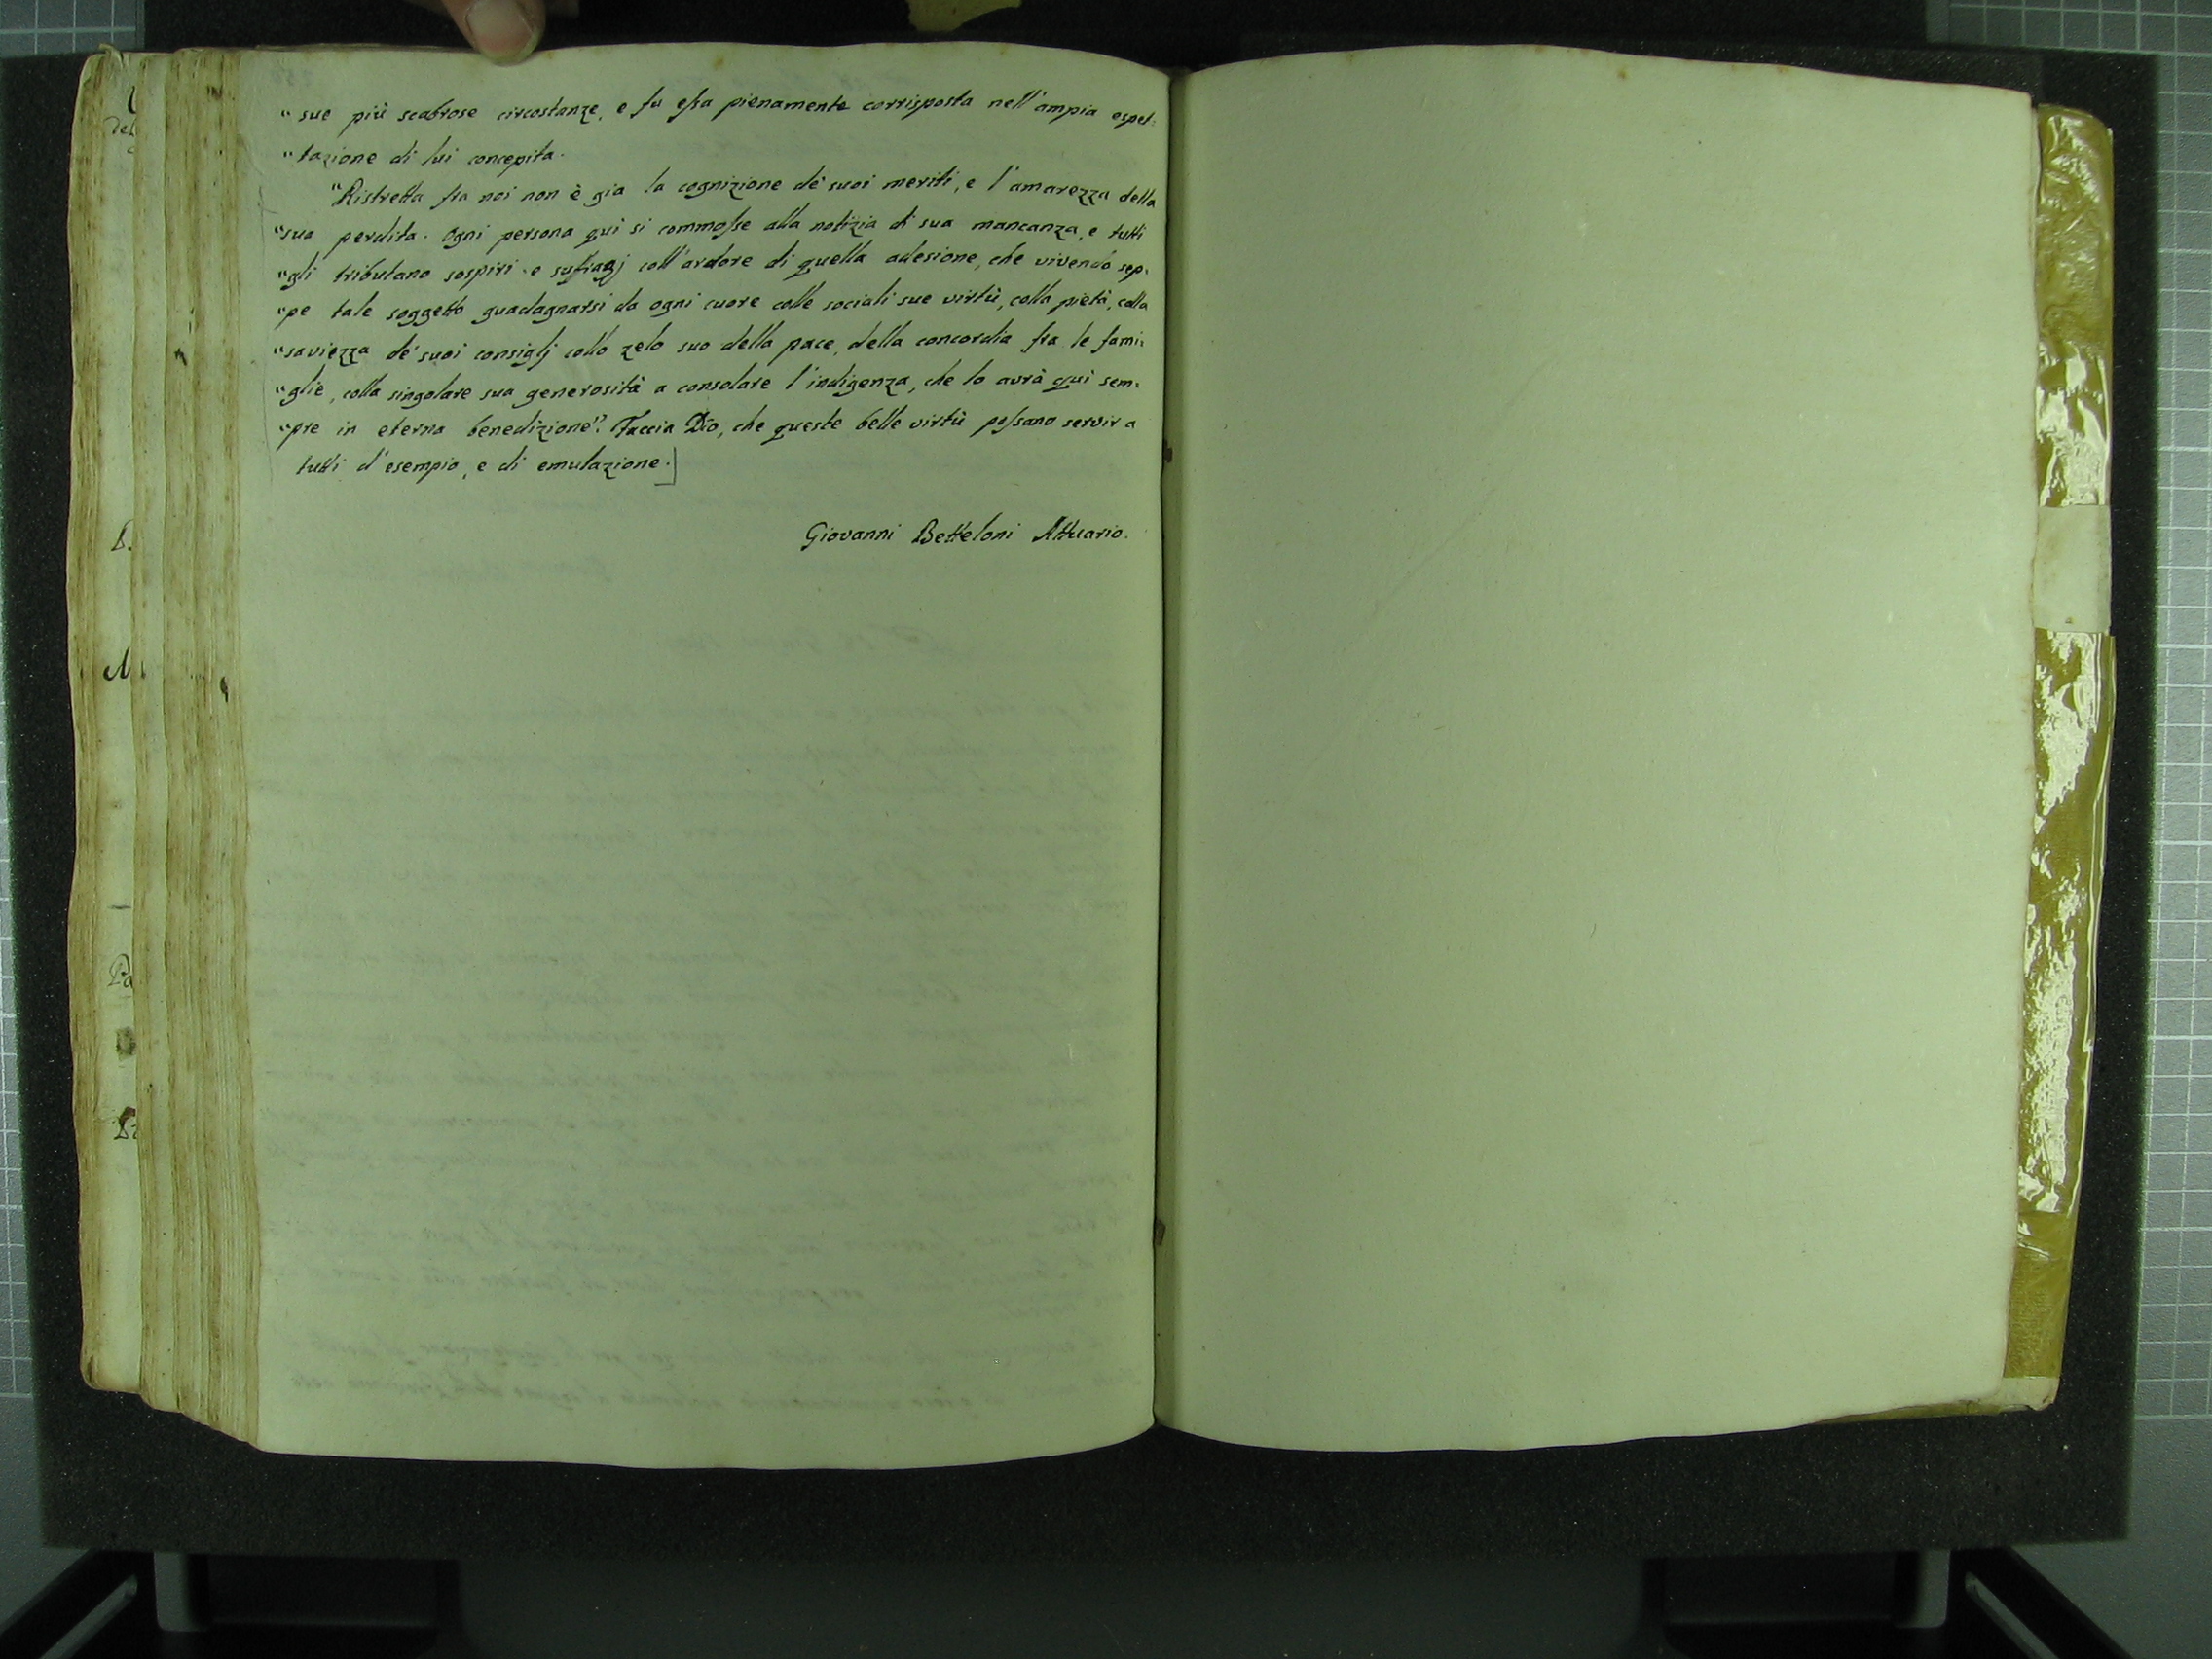 " sue più scabrose circostanze, e fu essa pienamente corrisposta nell'ampia aspet:
" tazione di lui concepita.
" Ristretta fra noi non è gia la cognizione de' suoi meriti, e l'amarezza della
" sua perdita. Ogni persona qui si commosse alla notizia di sua mancanza, e tutti
" gli tributano sospiri e suffragj coll'ardore di quella adesione, che vivendo sep:
" pe tale soggetto guadagnarsi da ogni cuore colle sociali sue virtù, colla pietà, colla
" saviezza de' suoi consiglj collo zelo suo della pace, della concordia fra le fami:
" glie, colla singolare sua generosità a consolare l'indigenza, che lo avrà qui sem:
" pre in eterna benedizione". Faccia Dio, che queste belle virtù possano servir a
tutti d'esempio, e di emulazione.]
Giovanni Betteloni Attuario.